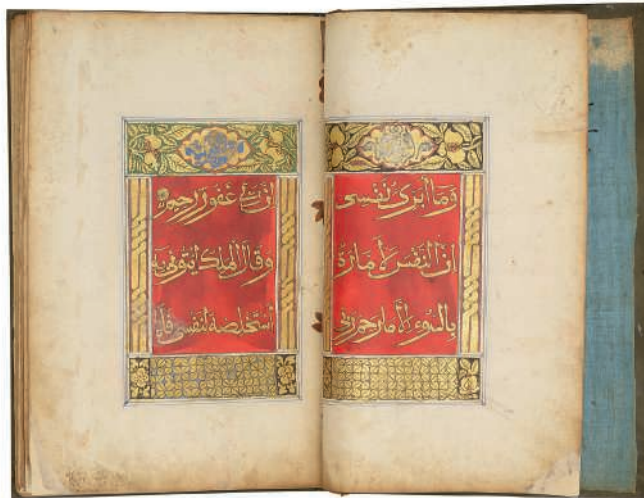 وما أبرئ نفسي
إن النفس لأمارة
بالسوء إلا ما رحم ربي
إن ربي غفور رحيم
وقال الملك ائتوني به
أستخلصه لنفسي فلما